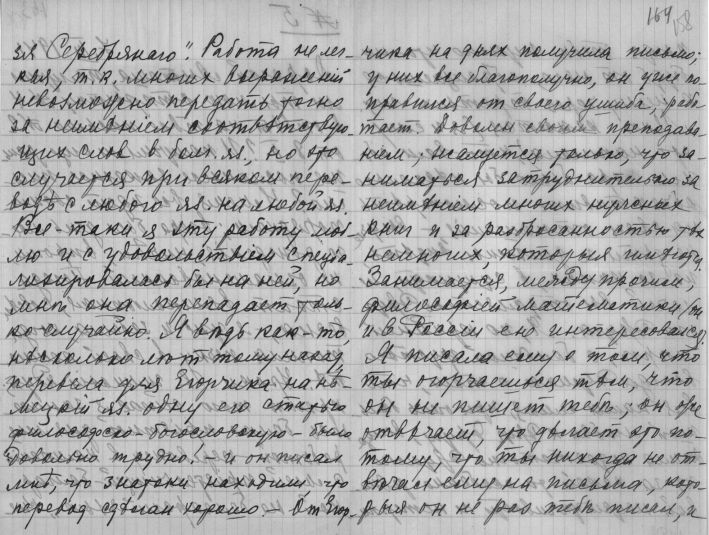 164
158
# 5
зя Серебряного". Работа не лег-
кая, т.к. многих выражений
невозможно передать точно
за неимѣнiем соотвѣтствую-
щих слов в болг. яз., но это
случается при всяком пере-
водѣ с любого яз. на любой яз.
Все-таки я эту работу люб-
лю и с удовольствiем спецiа-
лизировалась бы на ней, но
мнѣ она перепадает толь-
ко случайно. Я вѣдь как-то,
нѣсколько лѣт тому назад
перевела для Егорчика на нѣ-
мецкiй яз. одну его статью
философско-богословскую - было
довольно трудно! - и он писал
мнѣ, что знатоки находили, что
перевод сдѣлан хорошо - От Егор-
чика на днях получила письмо;
у них все благополучно, он уже по-
правился от своего ушиба, рабо-
тает. Доволен своим преподава-
нiем, жалуется только, что за-
ниматься затруднительно за
неимѣнiем многих нужных
книг и за разбросанностью тѣх
немногих, которыя имѣются.
Занимается, между прочим,
философiей математики (он
и в Россiи ею интересовался).
Я писала ему о том, что
ты огорчаешься тѣм, что
он не пишет тебѣ; он
отвѣчает, что дѣлает это по-
тому, что ты никогда не от-
вѣчал ему на письма, кото-
рыя он не раз тебѣ писал, и